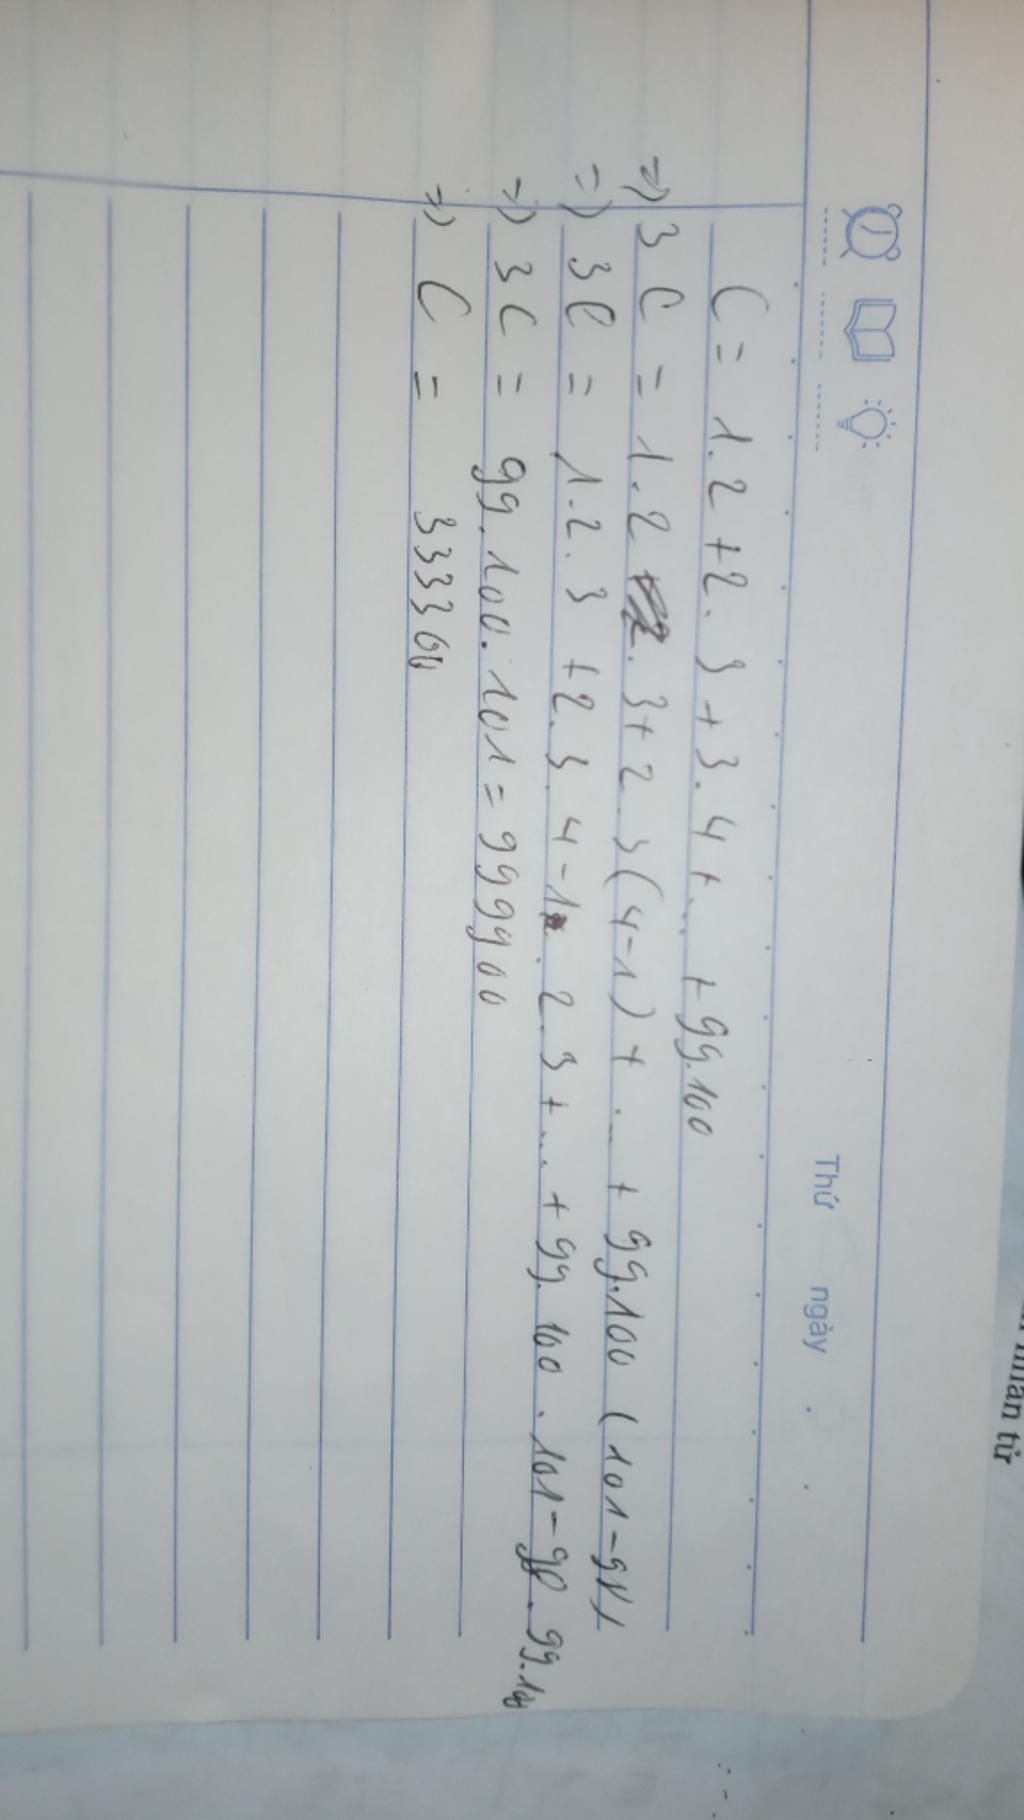 Thứ ngày . .
C = 1.2 + 2.3 + 3.4 + ... + 99.100
=> 3C = 1.2.3 + 2.3(4-1) + ... + 99.100(101-98)
=> 3C = 1.2.3 + 2.3.4 - 1.2.3 + ... + 99.100.101 - 98.99.100
=> 3C = 99.100.101 = 999900
=> C = 333300
nhân tử